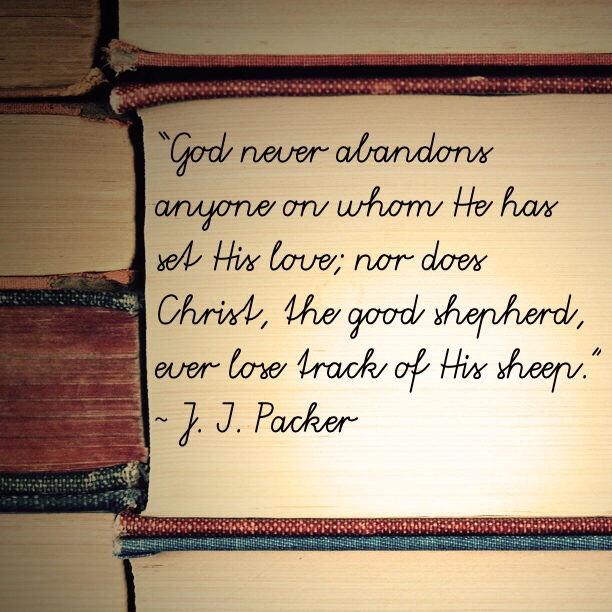 "God never abandons
anyone on whom He has
set His love; nor does
Christ, the good shepherd,
ever lose track of His sheep."
~ J. I. Packer